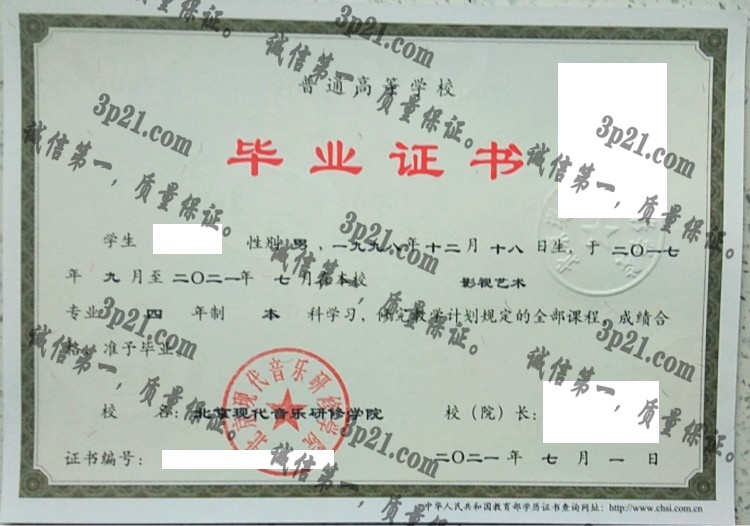 普通高等学校
毕业证书
学生 性别 男，一九九八年十二月十八日生，于二〇一七
年九月至二〇二一年七月在本校 影视艺术
专业 四 年制 本 科学习，修完教学计划规定的全部课程，成绩合
格，准予毕业。
校 名：北京现代音乐研修学院 校（院）长：
证书编号： 二〇二一年七月一日
中华人民共和国教育部学历证书查询网址：http://www.chsi.com.cn
北京现代音乐研修学院
3p21.com
诚信第一，质量保证。
3p21.com
诚信第一，质量保证。
3p21.com
诚信第一，质量保证。
3p21.com
诚信第一，质量保证。
3p21.com
诚信第一，质量保证。
3p21.com
诚信第一，质量保证。
3p21.com
诚信第一，质量保证。
3p21.com
质量保证。